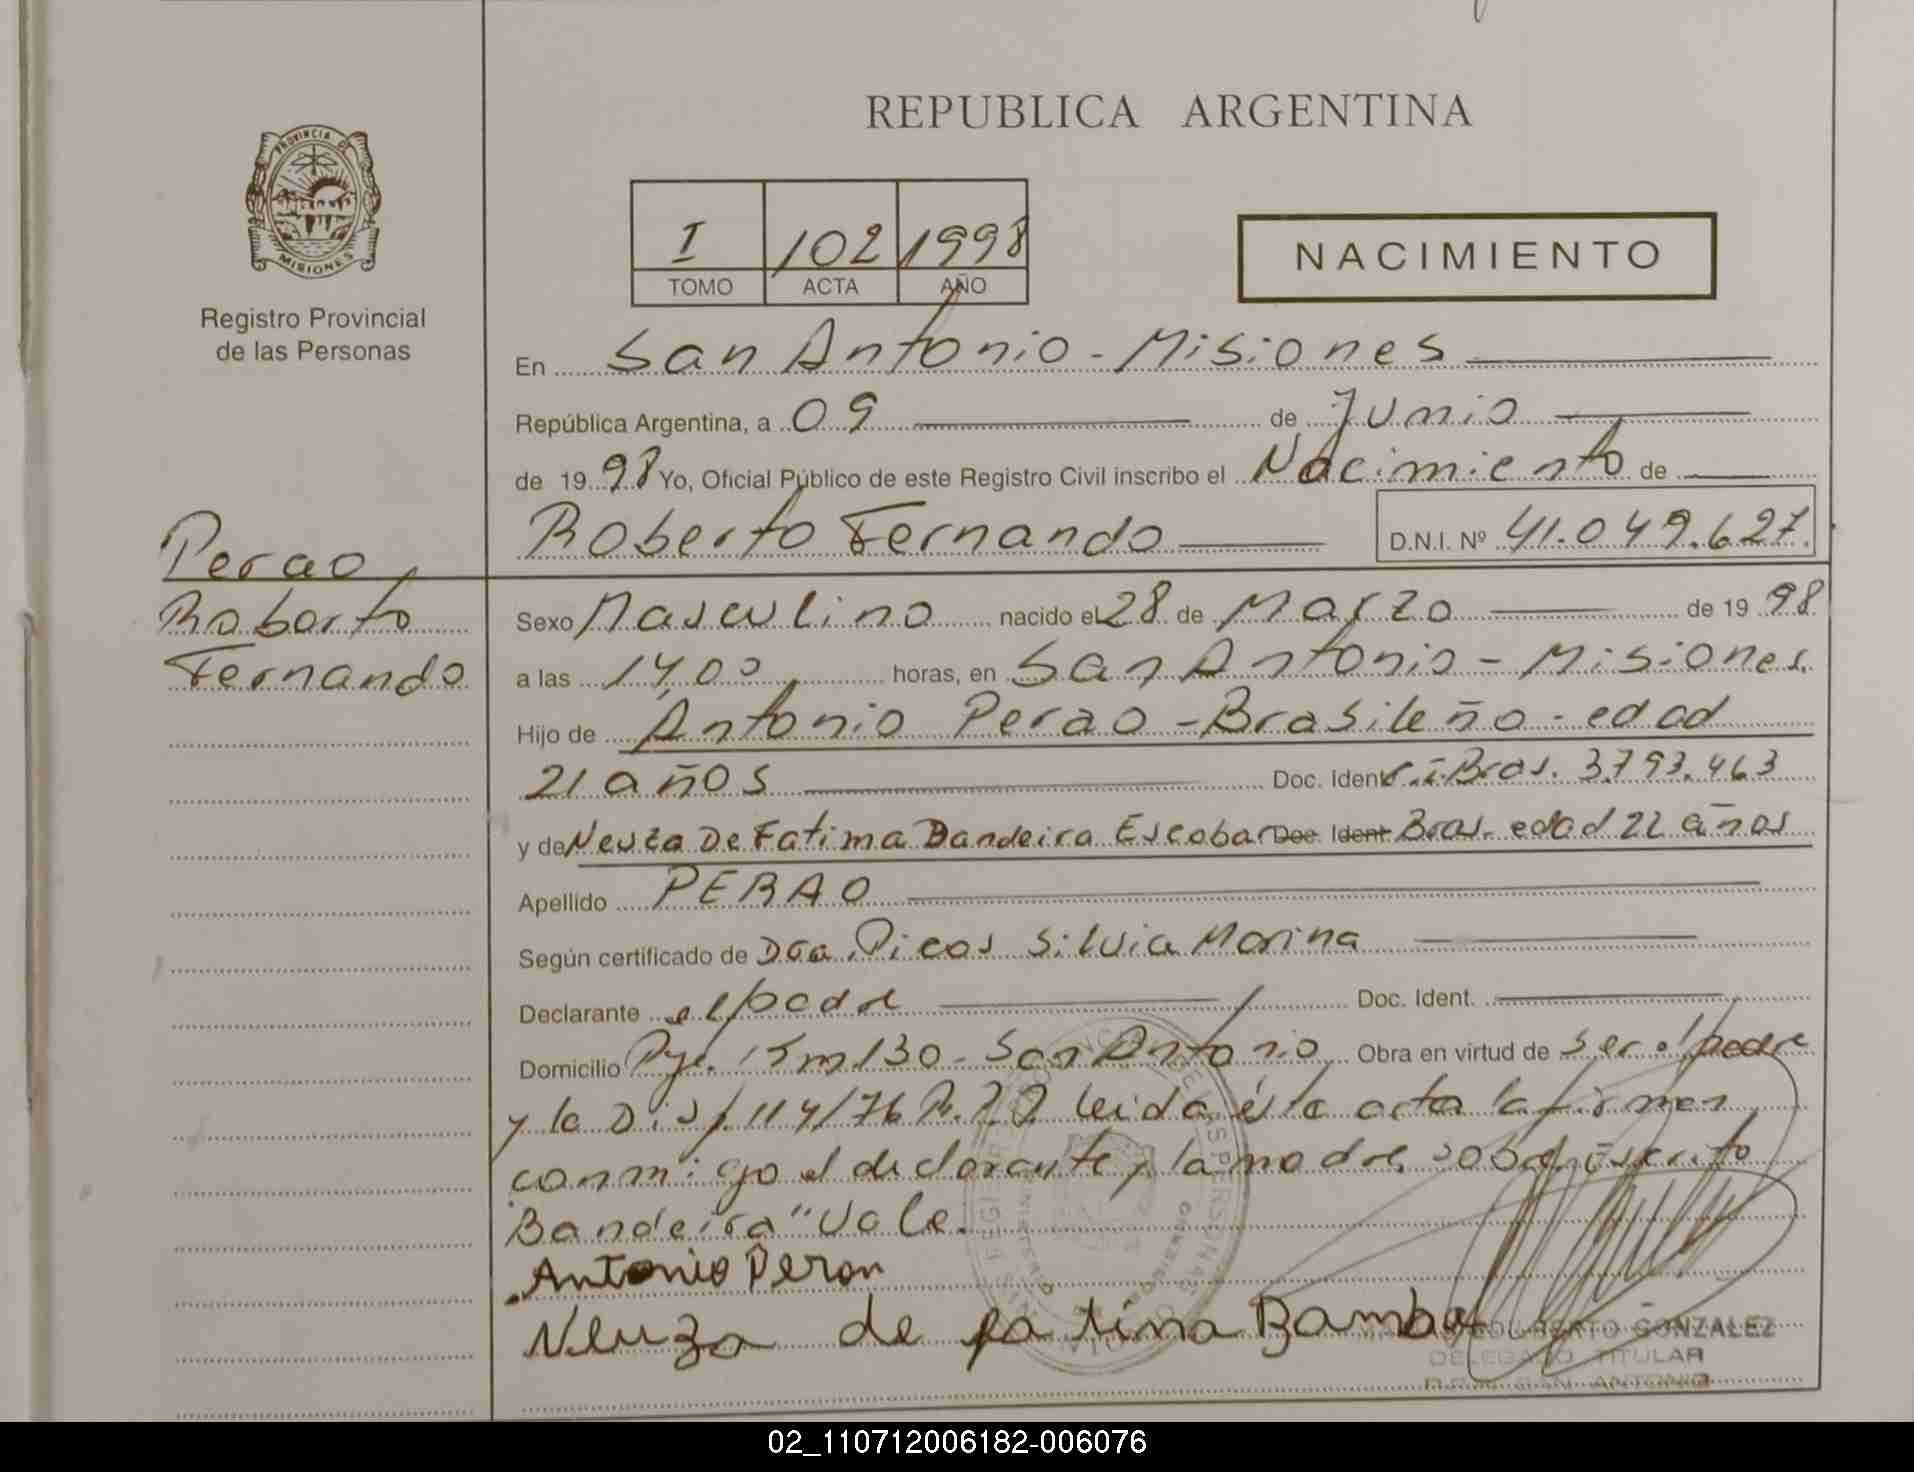 REPUBLICA ARGENTINA
PROVINCIA DE
MISIONES
Registro Provincial
de las Personas
I 102 1998
TOMO ACTA AÑO
NACIMIENTO
En San Antonio - Misiones
República Argentina, a 09 de Junio
de 1998 Yo, Oficial Público de este Registro Civil inscribo el Nacimiento de
Roberto Fernando D.N.I. Nº 41.049.627.
Perao
Roberto
Fernando
Sexo Masculino nacido el 28 de Marzo de 1998
a las 14,00 horas, en San Antonio - Misiones.
Hijo de Antonio Perao - Brasileño - edad
21 años Doc. Ident. C.I. Bras. 3.793.463
y de Neuza De Fatima Bandeira Escobar Doc. Ident. Bras. edad 22 años
Apellido PERAO
Según certificado de Dra. Picos Silvia Marina
Declarante el padre Doc. Ident.
Domicilio Pje. Km 130 - San Antonio Obra en virtud de ser el padre
y la Dis. 114/76 leida ésta acta la firman
conmigo el declarante y la madre, sobreescrito
Bandeira" Vale.
Antonio Peron
Neuza de fatima
GONZALEZ
DELEGADO TITULAR
SAN ANTONIO
02_110712006182-006076